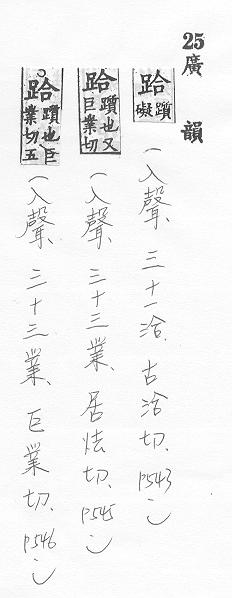 25 廣韻
跲 躓礙（入聲、三十一洽、古洽切、p543）
跲 躓也又巨業切（入聲、三十三業、居怯切、p545）
跲 躓也巨業切五（入聲、三十三業、巨業切、p546）